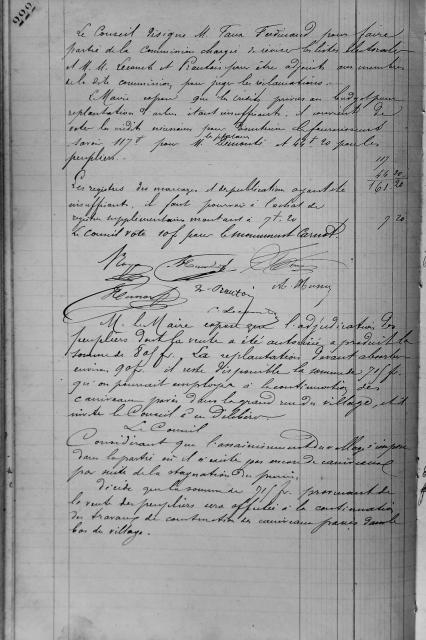 222
Le Conseil désigne M. Faux Ferdinand pour faire
partie de la Commission chargée de réviser les listes électorales
et M. M. Lecomte et Rautois pour être adjoints aux membres
de la dite commission, pour juger les réclamations.
Mr le Maire expose que les crédits prévus au budget pour
replantation d'arbres étant insuffisants, il convient de
voter les crédits nécessaires pour
savoir 117 f pour M. et 44 f 20 pour les
peupliers.
117
44 20
161 20
Les registres des mariages et de publication ayant été
insuffisants, il faut pourvoir à l'achat de
registres supplémentaires montant à 7 f. 20
7 20
Le Conseil vote 10 f pour le monument Carnot.
M. le Maire expose que l'adjudication des
peupliers dont la vente a été autorisée, a produit la
somme de 805 fr. La replantation devant absorber
environ 90 f. il reste disponible la somme de 715 fr.
qu'on pourrait employer à la continuation des
caniveaux pavés dans la grand rue du village, et il
invite le Conseil à en délibérer.
Le Conseil
Considérant que l'assainissement du village s'impose
dans la partie où il n'existe pas encore de caniveaux
par suite de la stagnation du purin.
décide que la somme de 715 fr. provenant de
la vente des peupliers sera affectée à la continuation
des travaux de construction des caniveaux pavés dans le
bas du village.